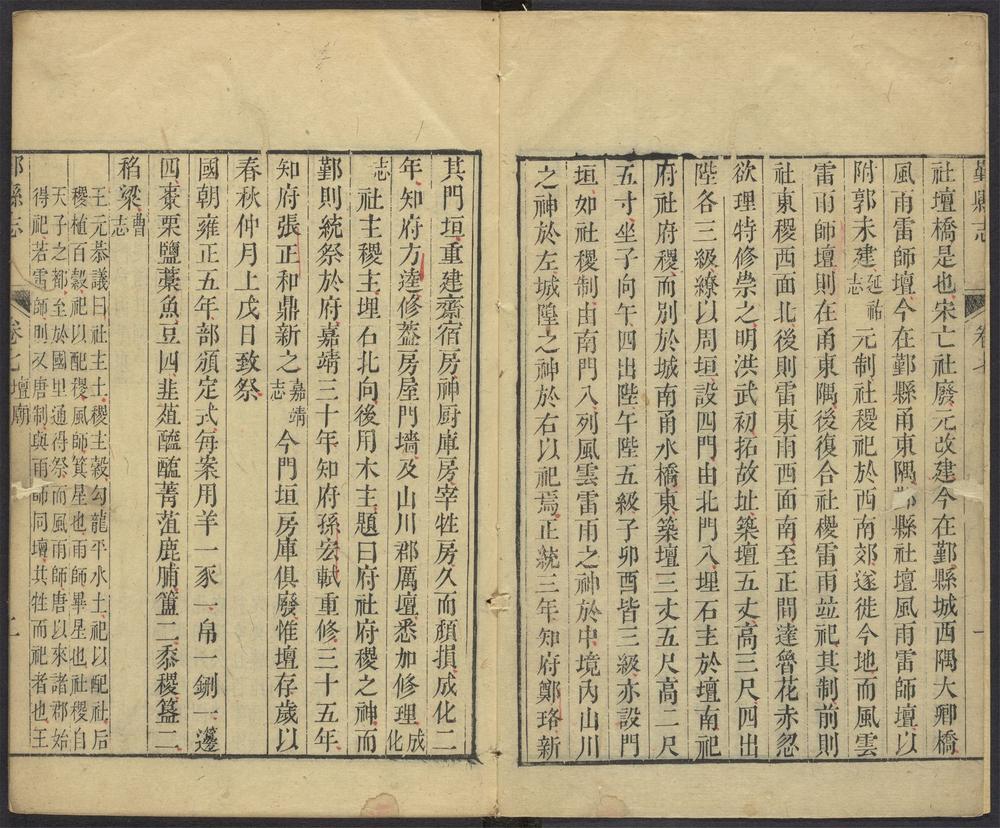 鄞縣志 卷七 一
社壇橋是也宋亡社廢元改建今在鄞縣城西隅大卿橋
風雨雷師壇今在鄞縣甬東隅縣社壇風雨雷師壇以
附郭未建延祐志元制社稷祀於西南郊遂徙今地而風雲
雷雨師壇則在甬東隅後復合社稷雷雨竝祀其制前則
社東稷西面北後則雷東南西面南至正間達魯花赤忽
欲理特修崇之明洪武初拓故址築壇五丈高三尺四出
陛各三級繚以周垣設四門由北門入埋石主於壇南祀
府社府稷而別於城南甬水橋東築壇三丈五尺高二尺
五寸坐子向午四出陛午陛五級子卯酉皆三級亦設門
垣如社稷制由南門入列風雲雷雨之神於中境內山川
之神於左城隍之神於右以祀焉正統三年知府鄭珞新
其門垣重建齋宿房神厨庫房宰牲房久而頹損成化二
年知府方逵修葢房屋門墻及山川郡厲壇悉加修理成化
志社主稷主埋石北向後用木主題曰府社府稷之神而
鄞則統祭於府嘉靖三十年知府孫宏軾重修三十五年
知府張正和鼎新之嘉靖志今門垣房庫俱廢惟壇存歲以
春秋仲月上戊日致祭
國朝雍正五年部頒定式每案用羊一豕一帛一鉶一籩
四棗栗鹽藁魚豆四韭葅醓醢菁菹鹿脯簠二黍稷簋二
稻粱曹志
王元恭議曰社主土稷主穀勾龍平水土祀以配社后
稷植百穀祀以配稷風師箕星也雨師畢星也社稷自
天子之都至於國里通得祭而風雨師唐以來諸郡始
得祀若雷師則又唐制與雨師同壇共牲而祀者也王
鄞縣志 卷七 壇廟 二